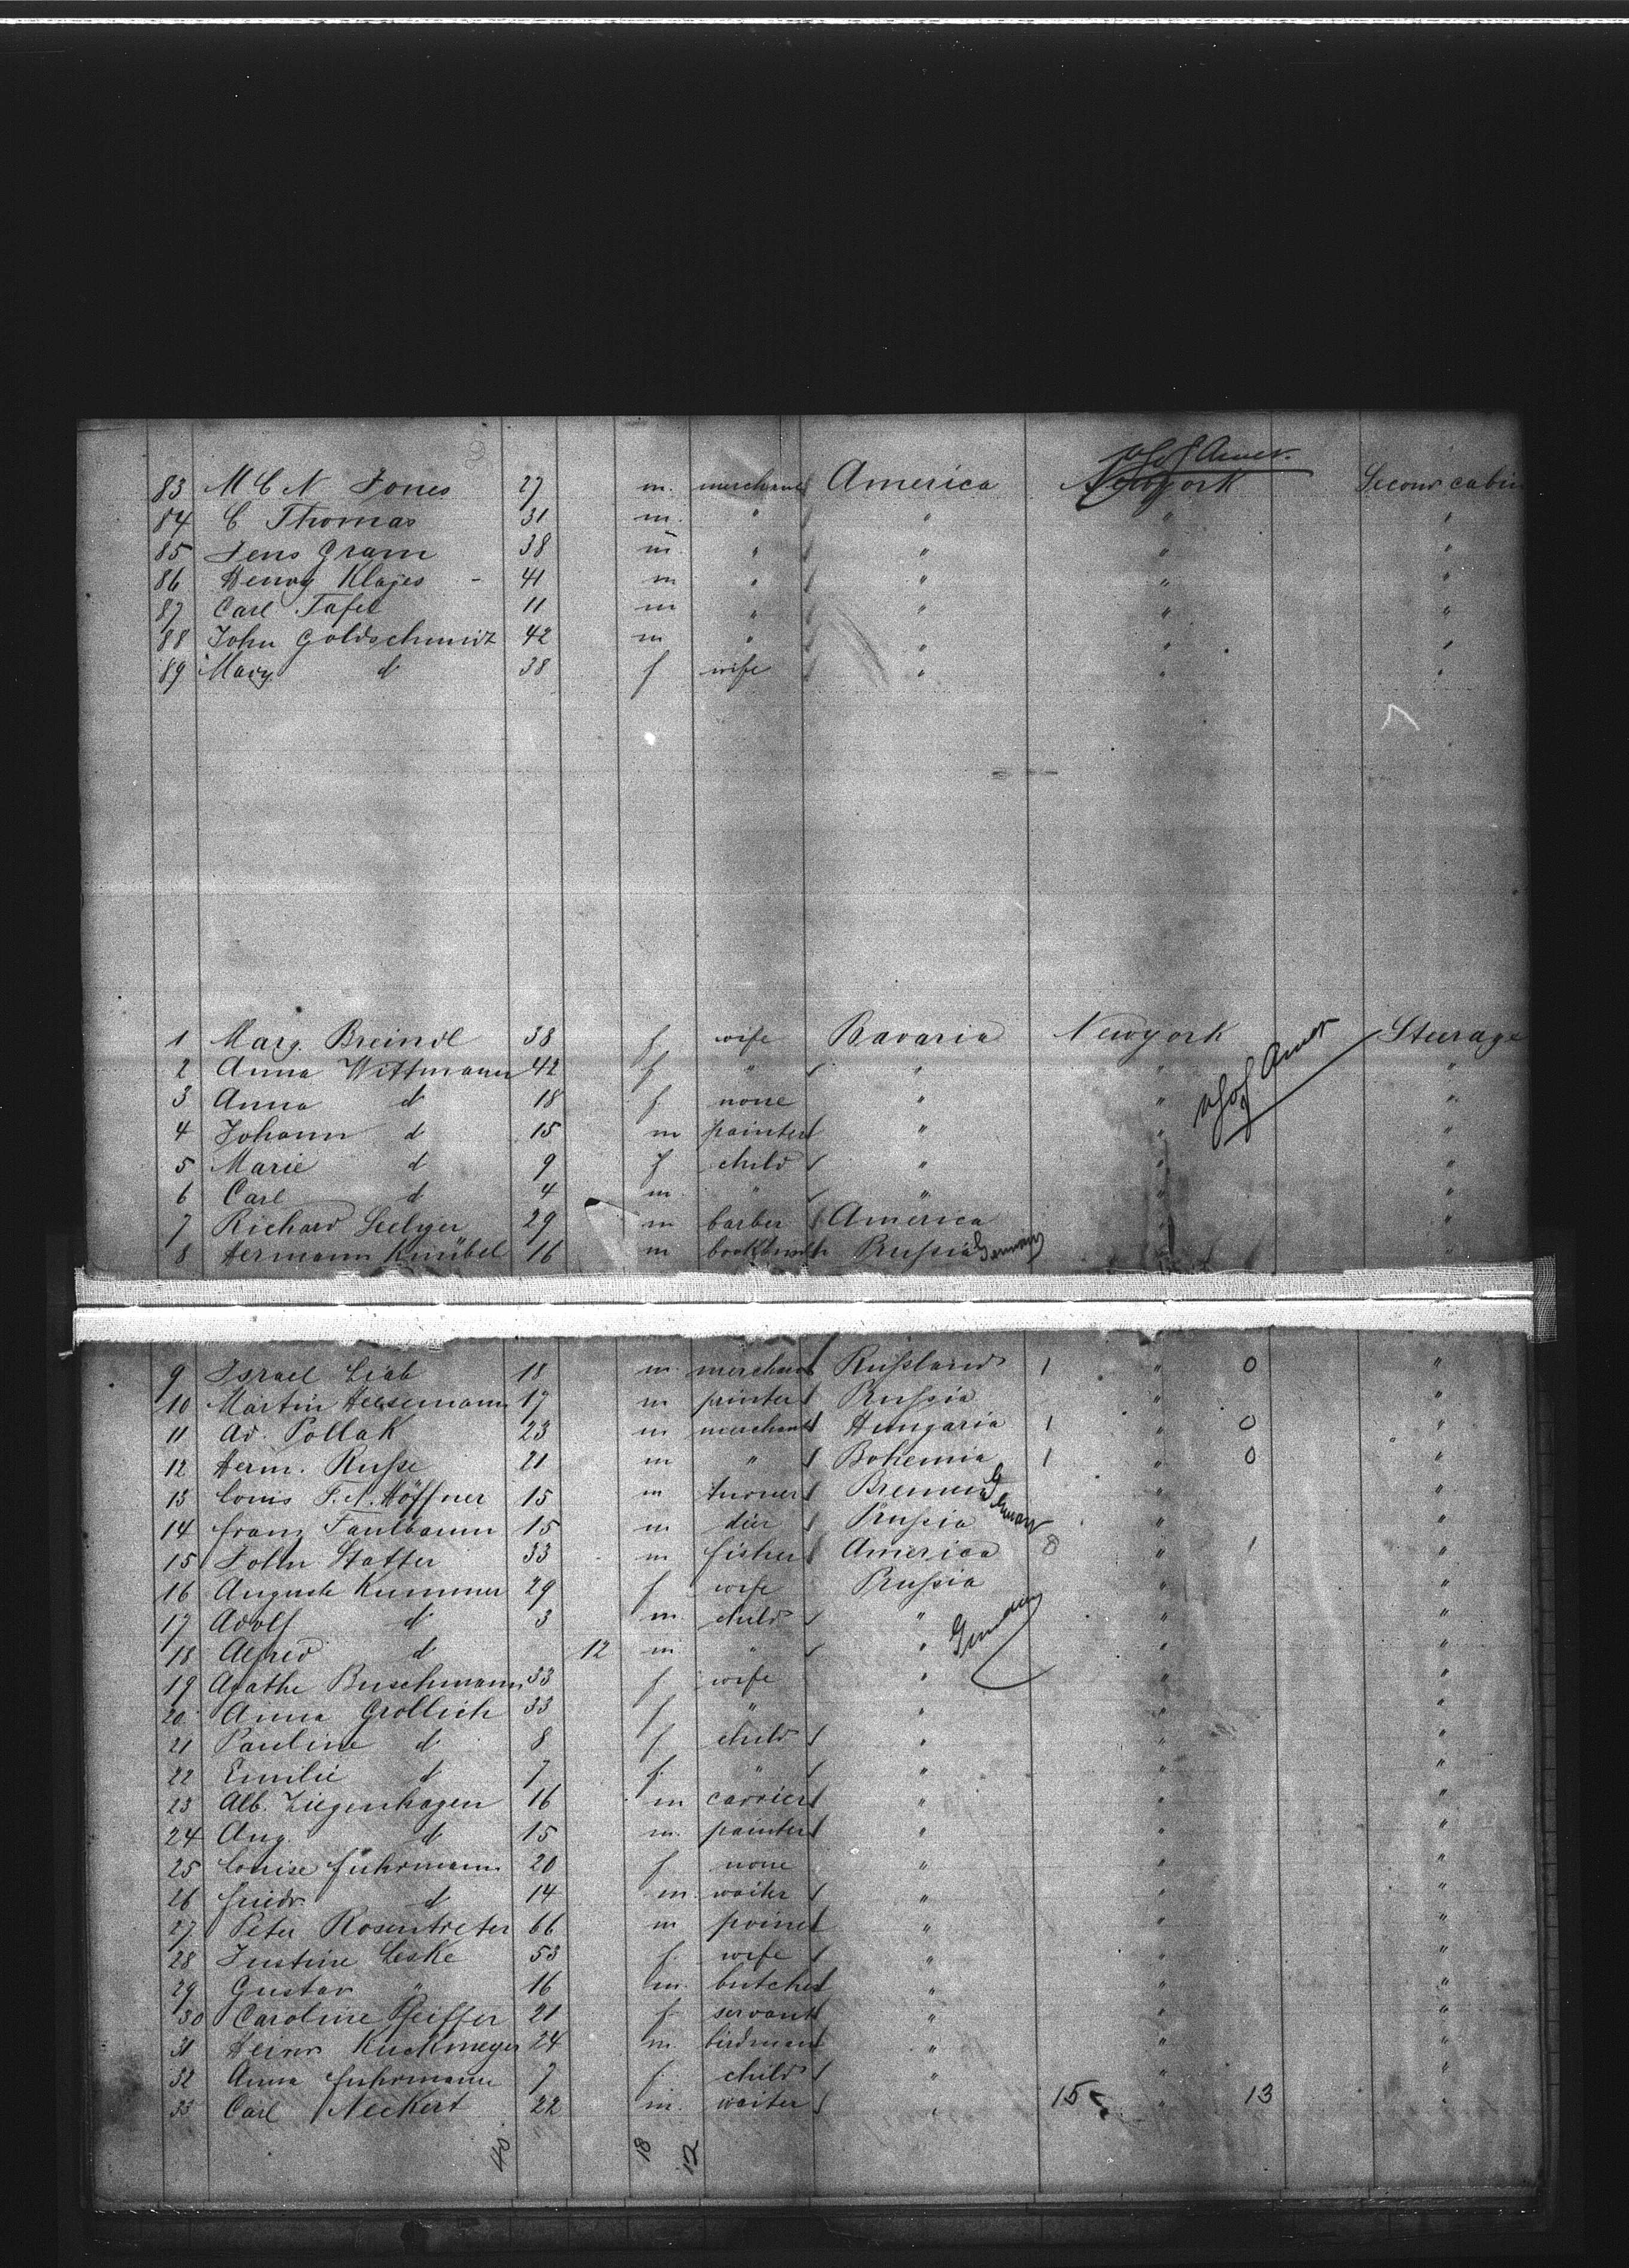 U S of Amer.
83 M C N Jones 27 m. merchant America Newyork Second cabin
84 C Thomas 31 m. " " " "
85 Jens Gram 38 m. " " " "
86 Henry Klages - 41 m " " " "
87 Carl Tafel 11 m " " " "
88 John Goldschmidt 42 m " " " "
89 Mary d 38 f wife " " "
1 Marg. Breindl 38 f wife Bavaria Newyork Steerage
2 Anna Wittmann 42 f " " " "
U S of Amer
3 Anna d 18 f none " " "
4 Johann d 15 m painter " " "
5 Marie d 9 f child " " "
6 Carl d 4 m. " " " "
7 Richard Seelyer 29 m barber America " "
8 Hermann Knübel 16 m Prussia Germany " "
9 Israel Liab 18 m. merchant Russland 1 " 0 "
10 Martin Heesemann 17 m printer Prussia " "
11 Ad. Pollak 23 m merchant Hungaria 1 " 0 "
12 Herm. Russe 21 m " Bohemia 1 " 0 "
13 Louis F. A. Höffner 15 m turner Bremen " "
14 Franz Faulbaum 15 m dier Prussia Germany " "
15 John Statter 33 m fisher America 0 " 1 "
16 Auguste Kummer 29 f wife Prussia " "
17 Adolf d 3 m child " " "
18 Alfred d 12 m " " Germany " "
19 Agathe Buschmann 33 f wife " " "
20 Anna Grollich 33 f " " " "
21 Pauline d 8 f child " " "
22 Emilie d 7 f. " " " "
23 Alb. Ziegenhagen 16 m carrier " " "
24 Aug. d 15 m. painter " " "
25 Louise Fuhrmann 20 f none " " "
26 Friedr. d 14 m. waiter " " "
27 Peter Rosentreter 66 m " " "
28 Justine Leske 53 f. wife " " "
29 Gustav " 16 m. butcher " " "
30 Caroline Pfeiffer 21 f servant " " "
31 Heinr Kuckmeyer 24 m birdman " " "
32 Anna Fuhrmann 7 f. child " " "
33 Carl Neckert 22 m. waiter " 15 " 13 "
40 18 12